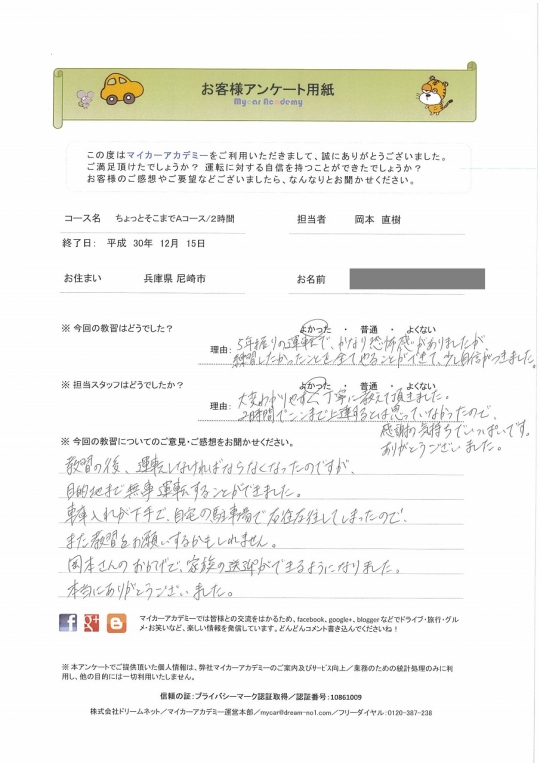 お客様アンケート用紙
Mycar Academy
この度はマイカーアカデミーをご利用いただきまして、誠にありがとうございました。
ご満足頂けたでしょうか？ 運転に対する自信を持つことができたでしょうか？
お客様のご感想やご要望などございましたら、なんなりとお聞かせください。
コース名 ちょっとそこまでAコース/2時間 担当者 岡本 直樹
終了日： 平成 30年 12月 15日
お住まい 兵庫県 尼崎市 お名前
※ 今回の教習はどうでした？ よかった ・ 普通 ・ よくない
理由： 5年振りの運転で、かなり恐怖感がありましたが
練習したかったことを全てやることができて、少し自信がつきました。
※ 担当スタッフはどうでしたか？ よかった ・ 普通 ・ よくない
理由： 大変わかりやすく、丁寧に教えて頂きました。
2時間でここまで上達するとは思っていなかったので、
感謝の気持ちでいっぱいです。
ありがとうございました。
※ 今回の教習についてのご意見・ご感想をお聞かせください。
教習の後、運転しなければならなくなったのですが、
目的地まで無事運転することができました。
車庫入れが下手で、自宅の駐車場で右往左往してしまったので、
また教習をお願いするかもしれません。
岡本さんのおかげで、家族の送迎ができるようになりました。
本当にありがとうございました。
マイカーアカデミーでは皆様との交流をはかるため、facebook、google+、blogger などでドライブ・旅行・グル
メ・お笑いなど、楽しい情報を発信しています。どんどんコメント書き込んでくださいね！
※ 本アンケートでご提供頂いた個人情報は、弊社マイカーアカデミーのご案内及びサービス向上／業務のための統計処理のみに利
用し、他の目的には一切利用いたしません。
信頼の証：プライバシーマーク認証取得／認証番号：10861009
株式会社ドリームネット／マイカーアカデミー運営本部／mycar@dream-no1.com／フリーダイヤル：0120-387-238